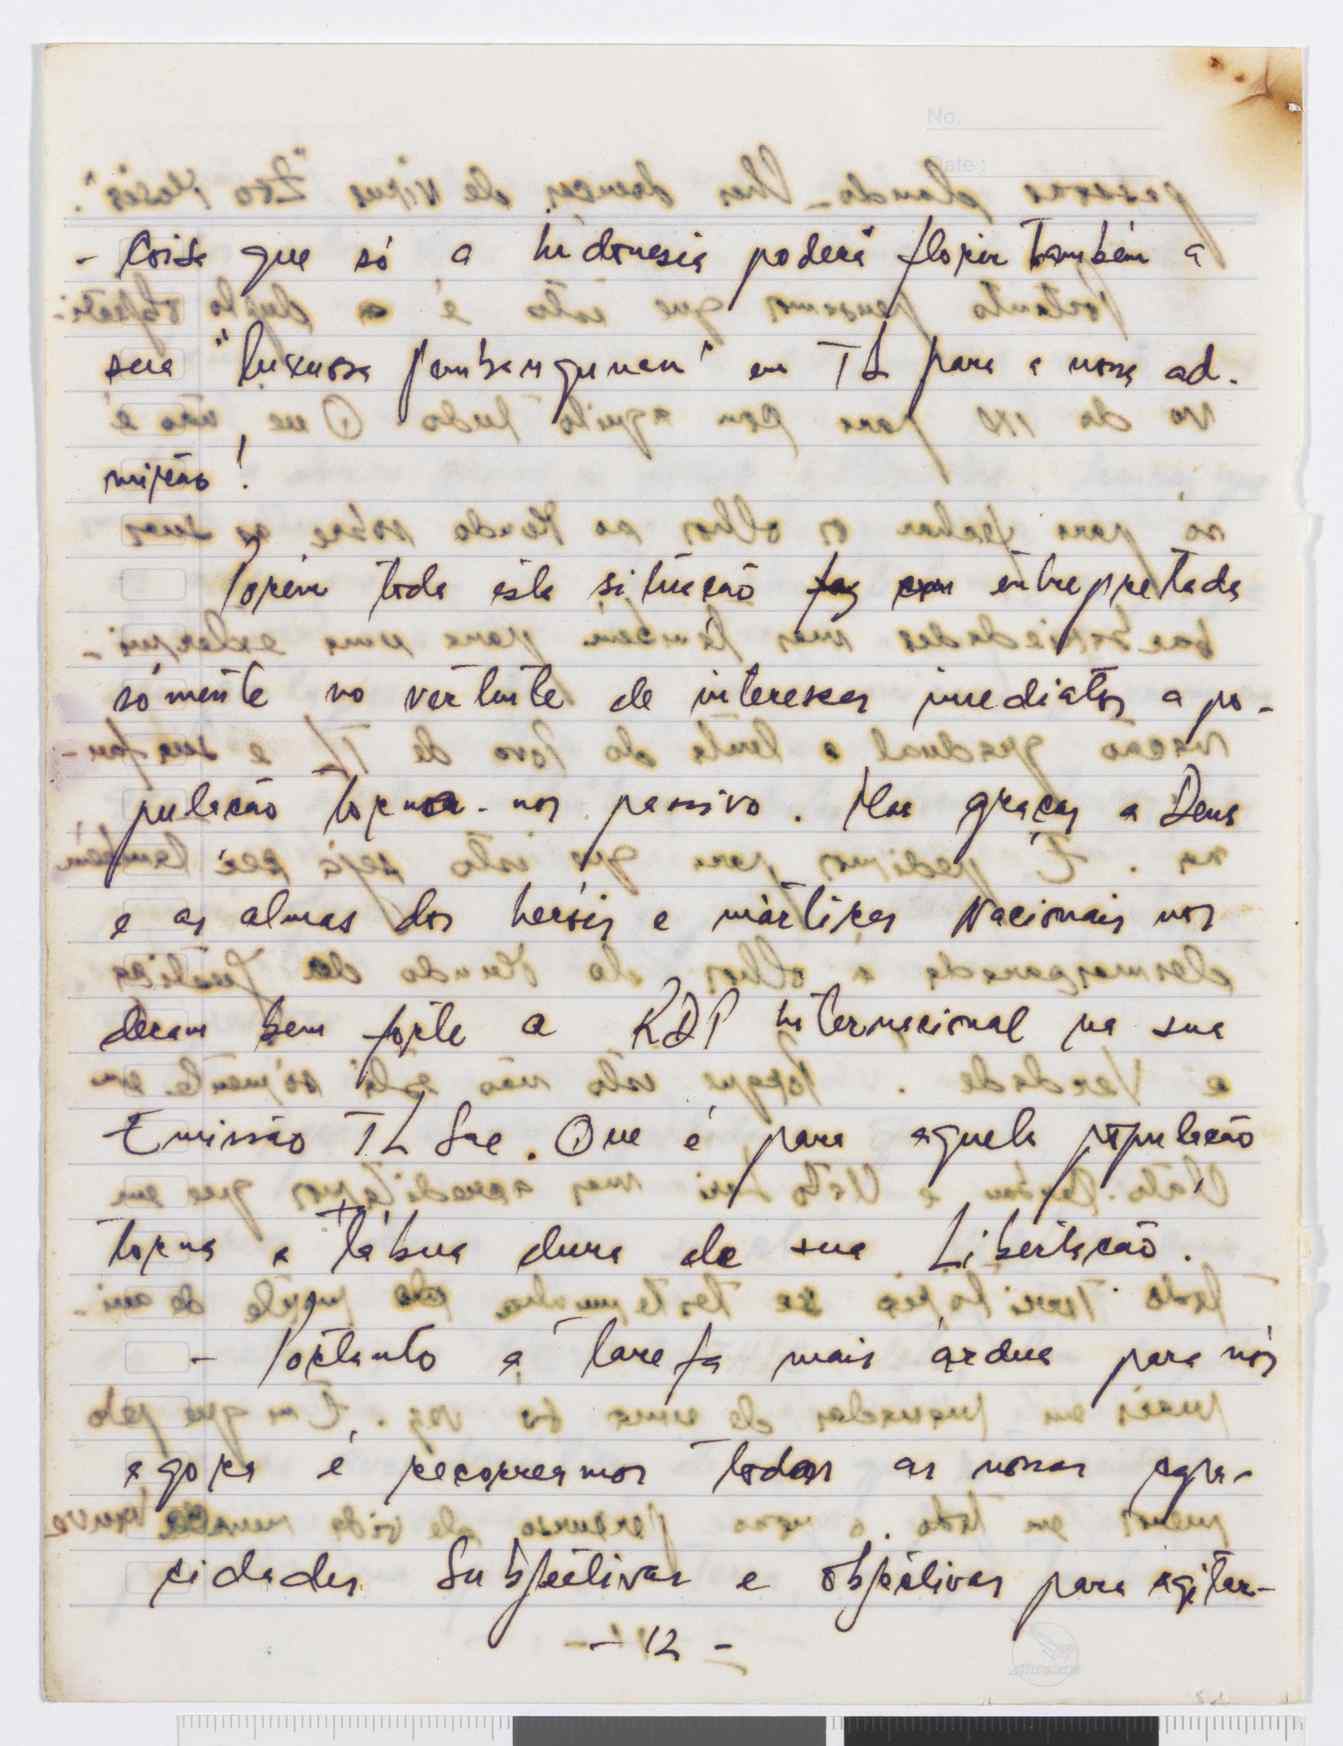 No.
Date:
- Coisa que só a Indonesia poderá florir também a
sua "luxuosa pembangunan" em TL para a nossa ad-
mirção!
Porém toda ésta situação faz com entrepretada
sómente no vertente de interesses imediatos a po-
pulacão torna-nos passivo. Mas graças a Deus
e as almas dos heróis e mártires Nacionais nos
decam bem forte a RDP Internacional na sua
Emissão TL Sae. Que é para aquela população
torna a tábua dura de sua Libertacão.
- Portanto a tarefa mais árdua para nós
agora é recorrermos todas as nossas capa-
cidades Subjéctivas e objéctivas para agitar-
- 12 -